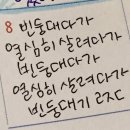 8 빈둥대다가
열심히 살려다가
빈둥대다가
열심히 살려다가
빈둥대기 루프